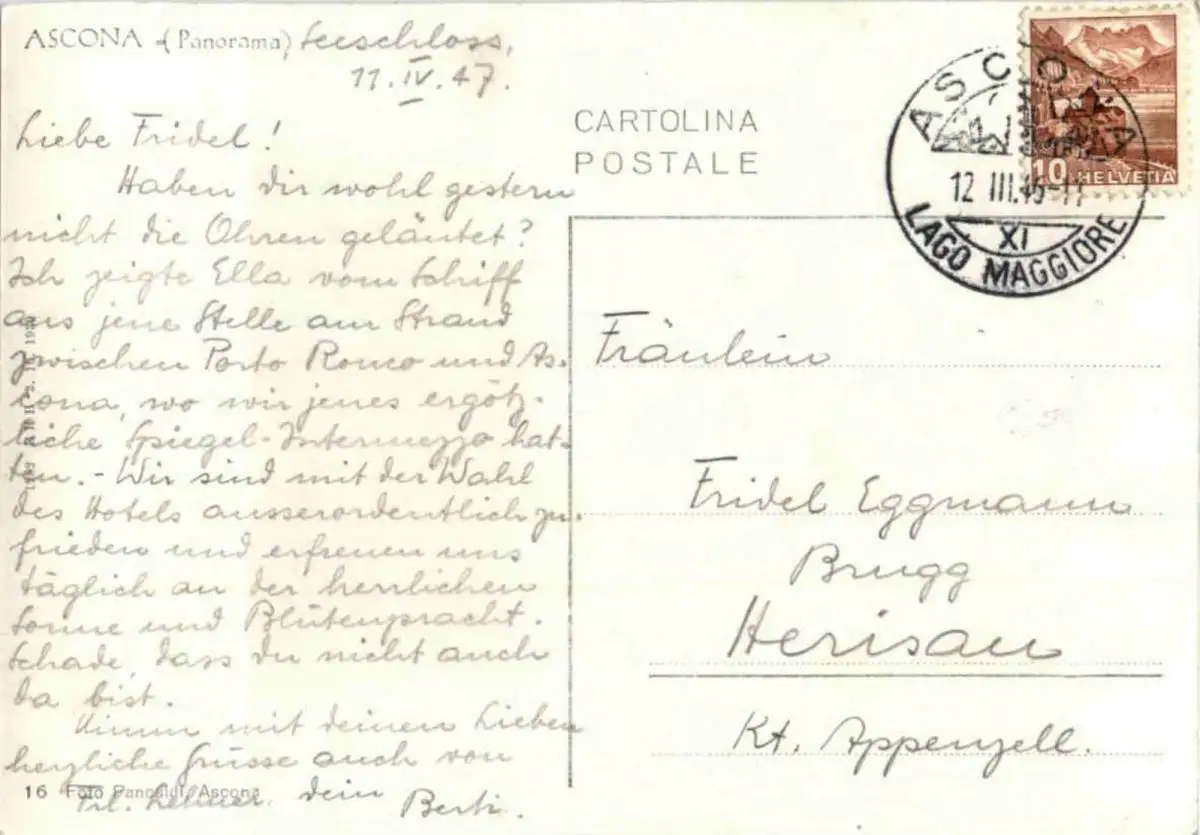 ASCONA -(Panorama) Seeschloss,
11. IV. 47.
Liebe Fridel!
Haben dir wohl gestern
nicht die Ohren geläutet?
Ich zeigte Ella vom Schiff
aus jene Stelle am Strand
zwischen Porto Ronco und As-
cona, wo wir jenes ergötz-
liche Spiegel-Intermezzo hat-
ten. - Wir sind mit der Wahl
des Hotels ausserordentlich zu-
frieden und erfreuen uns
täglich an der herrlichen
Sonne und Blütenpracht.
Schade, dass du nicht auch
da bist.
Nimm mit deinen Lieben
herzliche Grüsse auch von
Frl. dein Berti.
16 Foto Ascona
CARTOLINA
POSTALE
ASCONA
12 III.
XI
LAGO MAGGIORE
10 HELVETIA
Fräulein
Fridel Eggmann
Brugg
Herisau
Kt. Appenzell.